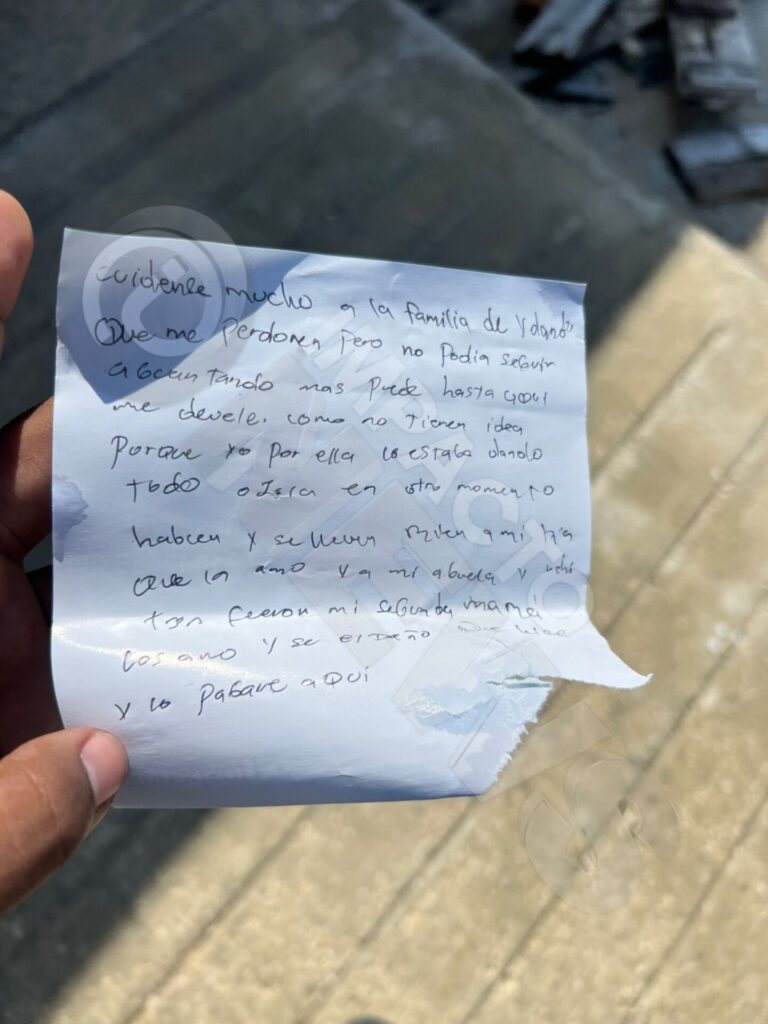 cuidense mucho a la familia de
Que me perdonen pero no podia seguir
mas puede hasta aqui
me devele. como no tienen idea
Porque yo por ella lo estaba dando
todo en otro momento
hablen y se lleven a mi
Que la amo y a mi abuela y
fueron mi segunda mamá
los amo y se el daño que
y lo pagare aqui
IMPACTO